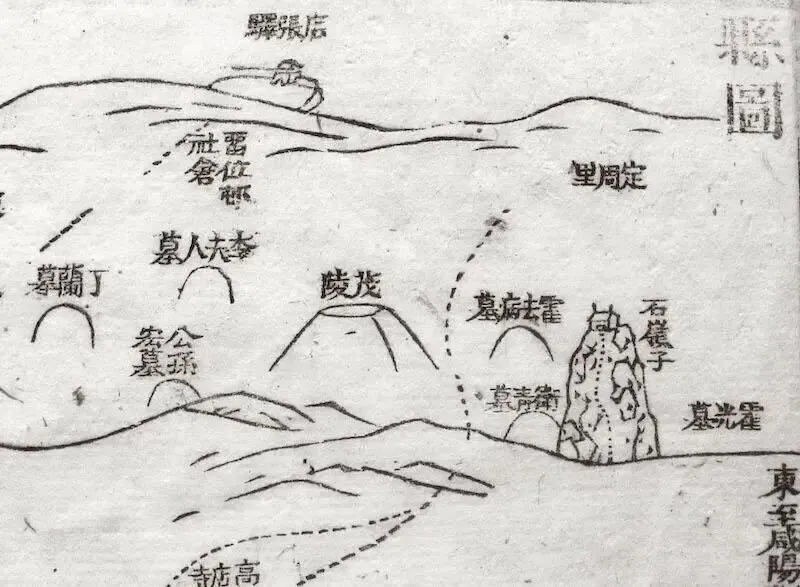 縣圖
店張驛
留位邨
社倉
定周里
李夫人墓
丁蘭墓
茂陵
公孫
宏墓
霍去病墓
石嶺子
衛青墓
霍光墓
東至咸陽
高店寺